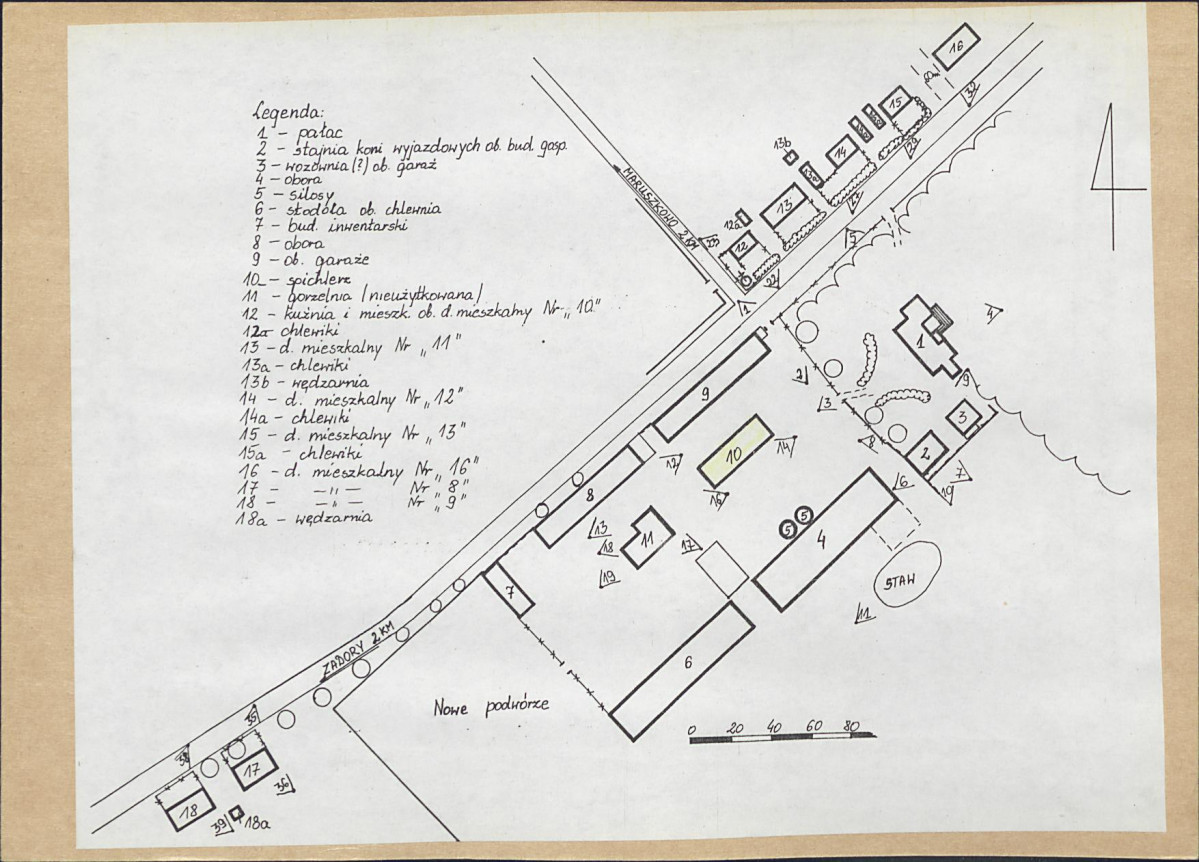 Legenda:
1 – pałac
2 – stajnia koni wyjazdowych ob. bud. gosp.
3 – wozownia (?) ob. garaż
4 – obora
5 – silosy
6 – stodoła ob. chlewnia
7 – bud. inwentarski
8 – obora
9 – ob. garaże
10 – spichlerz
11 – gorzelnia /nieużytkowana/
12 – kuźnia i mieszk. ob. d. mieszkalny Nr „10"
12a chlewiki
13 – d. mieszkalny Nr „11"
13a – chlewiki
13b – wędzarnia
14 – d. mieszkalny Nr „12"
14a – chlewiki
15 – d. mieszkalny Nr „13"
15a – chlewiki
16 – d. mieszkalny Nr „16"
17 – –"– Nr „8"
18 – –"– Nr „9"
18a – wędzarnia
16
32
15
29
14
13b
13
27
12a
12
22
5
1
MARUSZKOWO 2KM
4
1
9
2
3
3
8
2
7
6
19
9
10
14
12
16
8
5
5
4
13
18
19
11
17
STAW
11
7
6
ZADORY 2KM
Nowe podwórze
0 20 40 60 80
35
38
17
36
18
39
18a